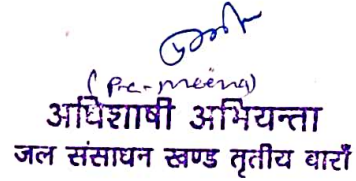 (P.C. Meena)
अधिशाषी अभियन्ता
जल संसाधन खण्ड तृतीय बाराँ